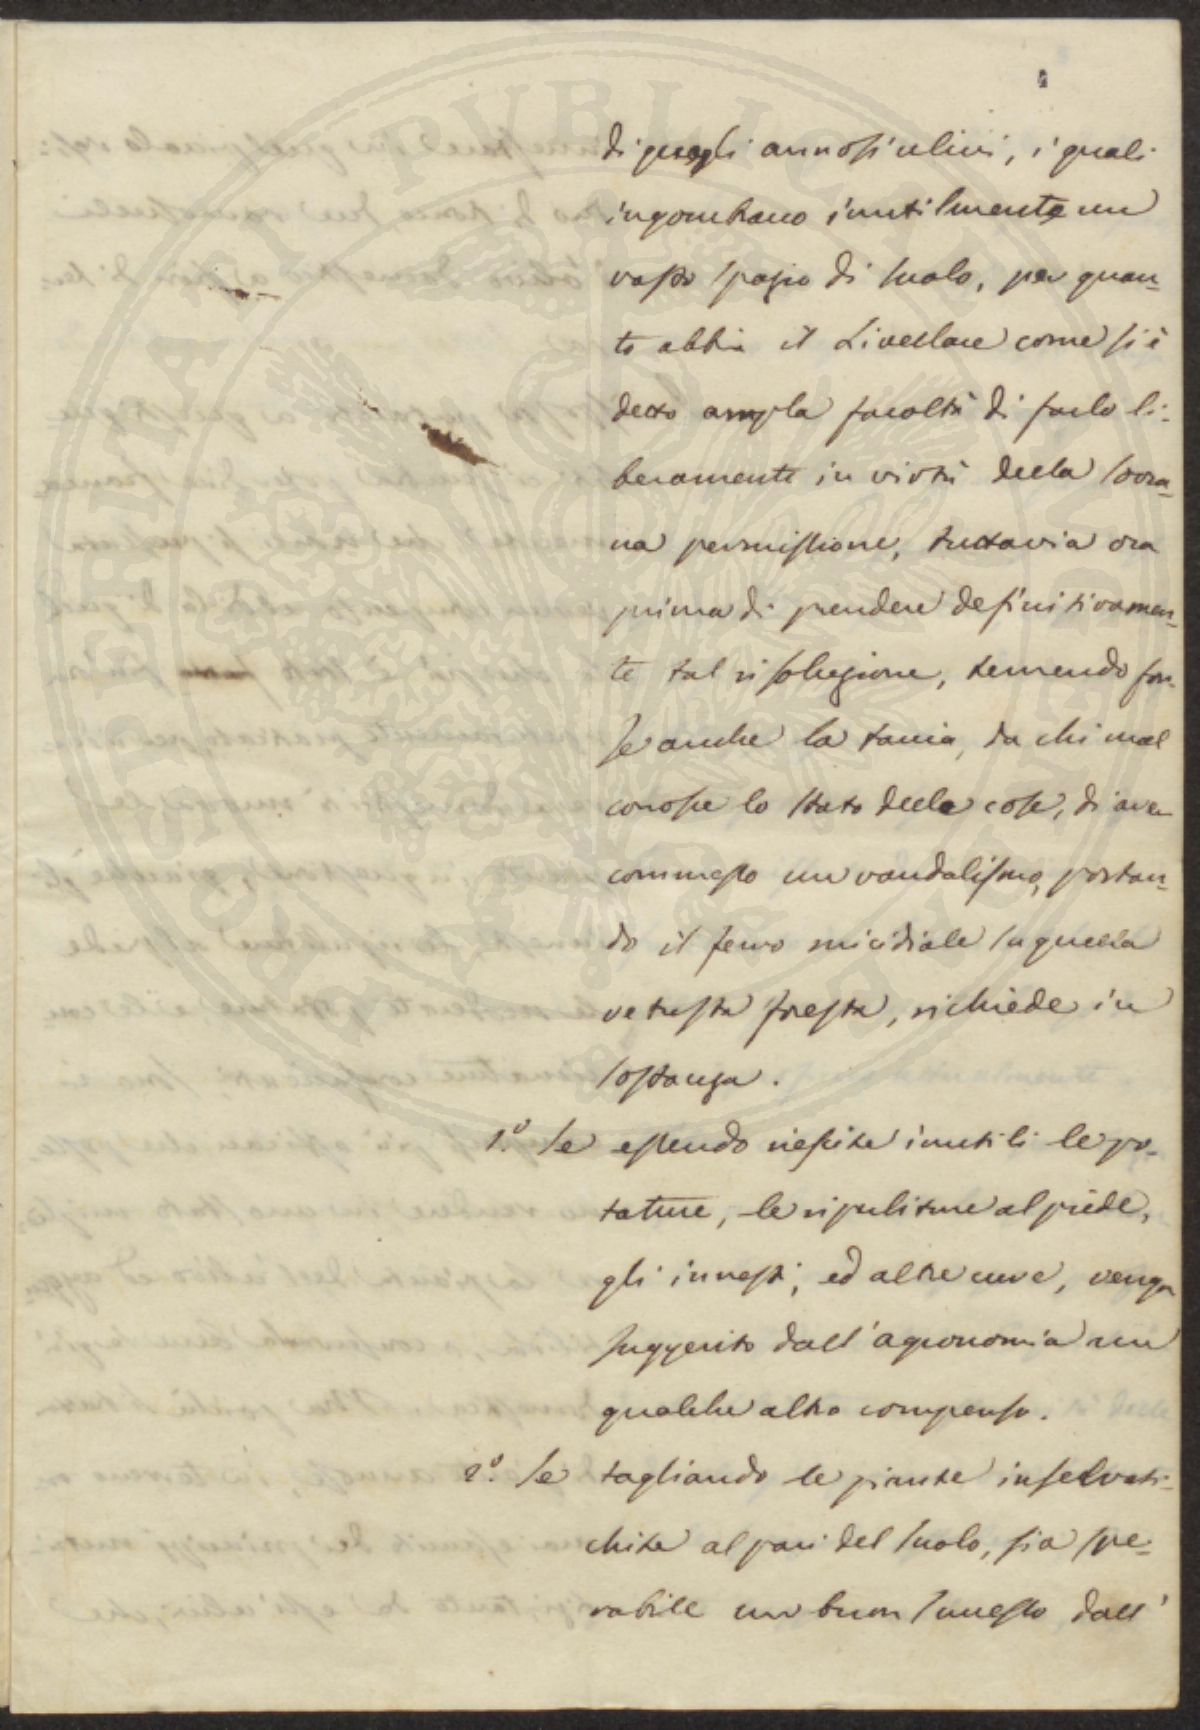 di quegli annosi ulivi, i quali
ingombrano inutilmente un
vasto spazio di suolo, per quan-
to abbia il Livellare come si è
detto ampla facoltà di farlo li-
beramente in virtù della Sovra-
na permissione, tuttavia ora
prima di prendere definitivamen-
te tal risoluzione, temendo for-
se anche la taccia, da chi mal
conosce lo stato delle cose, di aver
commesso un vandalismo, portan-
do il ferro micidiale su quella
vetusta foresta, richiede in
sostanza.
1.º Se essendo riescite inutili le po-
tature, le ripuliture al piede,
gli innesti, ed altre cure, venga
suggerito dall'agronomia un
qualche altro compenso.
2.º Se tagliando le piante inselvati-
chite al pari del suolo, sia spe-
rabile un buon successo dall'